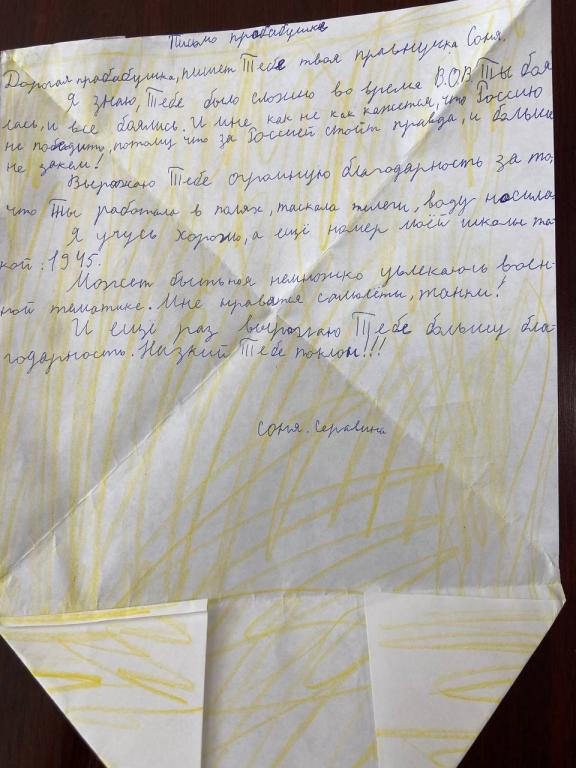 Письмо прабабушке
Дорогая прабабушка, пишет Тебе твоя правнучка Соня.
Я знаю, Тебе было сложно во время В.О.В Ты боя
лась, и все боялись. И мне как не как кажется, что Россию
не победить, потому что за Россией стоит правда, и больше
не за кем!
Выражаю Тебе огромную благодарность за то,
что Ты работала в полях, таскала телеги, воду носила.
Я учусь хорошо, а ещё номер моей школы та-
кой: 1945.
Может быть, я немножко увлекаюсь воен-
ной тематике. Мне нравятся самолёты, танки!
И ещё раз выражаю Тебе большу бла-
годарность. Низкий Тебе поклон!!!
Соня.